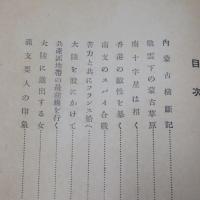 目次
内蒙古横断記
戦雲下の蒙古草原
南十字星は招く
香港の敵性を暴く
南支のスパイ合戦
苦力と共にフランス船へ
大陸を股にかけて
共産匪地帯の最前線を行く
大陸に進出する女
親支要人の印象